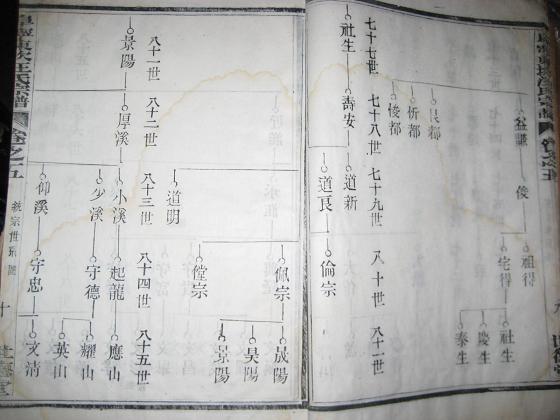 氏宗譜
卷之五
九
益謙
俊
祖得
宅得
社生
慶生
泰生
艮都
忻都
悛都
七十七世
七十八世
七十九世
八十世
八十一世
社生
壽安
道新
道良
倫宗
佩宗
晟陽
昊陽
景陽
道明
八十一世
八十二世
八十三世
八十四世
八十五世
景陽
厚溪
小溪
起龍
應山
少溪
守德
耀山
英山
仰溪
守忠
文清
汪氏宗譜
卷之五
宗世系圖
十